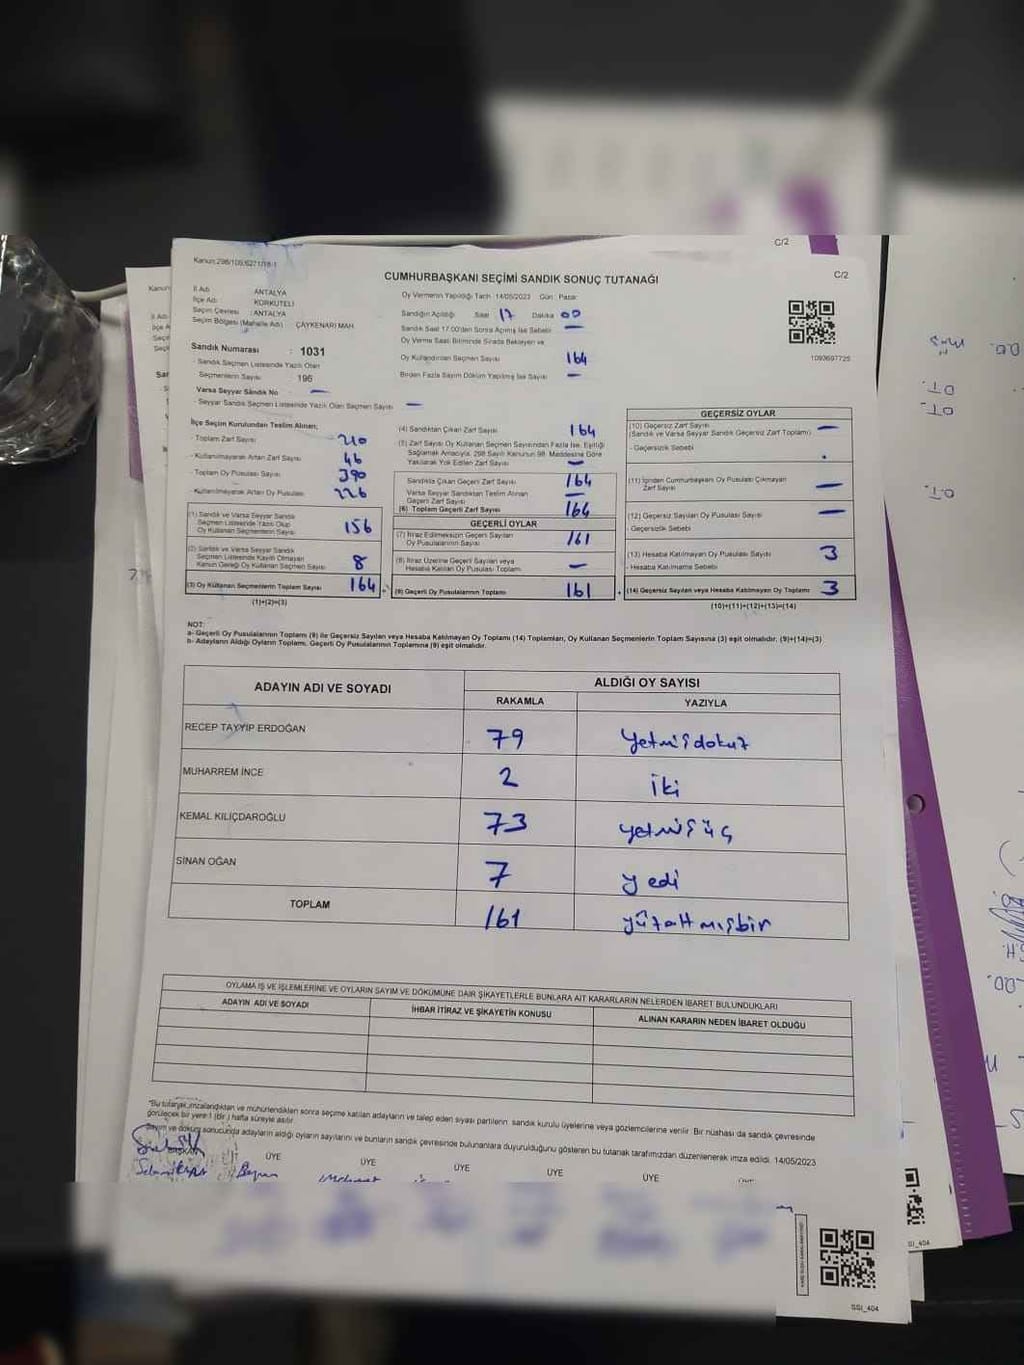 C/2
Kanun:298/105,6271/18-1
C/2
CUMHURBAŞKANI SEÇİMİ SANDIK SONUÇ TUTANAĞI
İl Adı : ANTALYA
İlçe Adı : KORKUTELİ
Seçim Çevresi : ANTALYA
Seçim Bölgesi (Mahalle Adı) : ÇAYKENARI MAH.
Oy Vermenin Yapıldığı Tarih 14/05/2023 Gün : Pazar
Sandığın Açıldığı Saat 17 Dakika 00
Sandık Saat 17.00'den Sonra Açılmış İse Sebebi —
Oy Verme Saati Bitiminde Sırada Bekleyen ve
Oy Kullandırılan Seçmen Sayısı 164
Birden Fazla Sayım Döküm Yapılmış İse Sayısı —
1093697725
Sandık Numarası : 1031
- Sandık Seçmen Listesinde Yazılı Olan
Seçmenlerin Sayısı 196
Varsa Seyyar Sandık No —
- Seyyar Sandık Seçmen Listesinde Yazılı Olan Seçmen Sayısı —
İlçe Seçim Kurulundan Teslim Alınan;
- Toplam Zarf Sayısı 210
- Kullanılmayarak Artan Zarf Sayısı 46
- Toplam Oy Pusulası Sayısı 390
- Kullanılmayarak Artan Oy Pusulası 226
(1) Sandık ve Varsa Seyyar Sandık
Seçmen Listesinde Yazılı Olup
Oy Kullanan Seçmenlerin Sayısı 156
(2) Sandık ve Varsa Seyyar Sandık
Seçmen Listesinde Kayıtlı Olmayan
Kanun Gereği Oy Kullanan Seçmen Sayısı 8
(3) Oy Kullanan Seçmenlerin Toplam Sayısı 164
(1)+(2)=(3)
(4) Sandıktan Çıkan Zarf Sayısı 164
(5) Zarf Sayısı Oy Kullanan Seçmen Sayısından Fazla İse, Eşitliği
Sağlamak Amacıyla, 298 Sayılı Kanunun 98. Maddesine Göre
Yakılarak Yok Edilen Zarf Sayısı —
Sandıkta Çıkan Geçerli Zarf Sayısı 164
Varsa Seyyar Sandıktan Teslim Alınan
Geçerli Zarf Sayısı —
(6) Toplam Geçerli Zarf Sayısı 164
GEÇERLİ OYLAR
(7) İtiraz Edilmeksizin Geçerli Sayılan
Oy Pusulalarının Sayısı 161
(8) İtiraz Üzerine Geçerli Sayılan veya
Hesaba Katılan Oy Pusulası Toplamı —
(9) Geçerli Oy Pusulalarının Toplamı 161
GEÇERSİZ OYLAR
(10) Geçersiz Zarf Sayısı
(Sandık ve Varsa Seyyar Sandık Geçersiz Zarf Toplamı) —
- Geçersizlik Sebebi
(11) İçinden Cumhurbaşkanı Oy Pusulası Çıkmayan
Zarf Sayısı —
(12) Geçersiz Sayılan Oy Pusulası Sayısı —
- Geçersizlik Sebebi
(13) Hesaba Katılmayan Oy Pusulası Sayısı 3
- Hesaba Katılmama Sebebi
(14) Geçersiz Sayılan veya Hesaba Katılmayan Oy Toplamı 3
(10)+(11)+(12)+(13)=(14)
NOT:
a- Geçerli Oy Pusulalarının Toplamı (9) ile Geçersiz Sayılan veya Hesaba Katılmayan Oy Toplamı (14) Toplamları, Oy Kullanan Seçmenlerin Toplam Sayısına (3) eşit olmalıdır. (9)+(14)=(3)
b- Adayların Aldığı Oyların Toplamı, Geçerli Oy Pusulalarının Toplamına (9) eşit olmalıdır.
ADAYIN ADI VE SOYADI
ALDIĞI OY SAYISI
RAKAMLA YAZIYLA
RECEP TAYYİP ERDOĞAN 79 yetmişdokuz
MUHARREM İNCE 2 iki
KEMAL KILIÇDAROĞLU 73 yetmişüç
SİNAN OĞAN 7 yedi
TOPLAM 161 yüzaltmışbir
OYLAMA İŞ VE İŞLEMLERİNE VE OYLARIN SAYIM VE DÖKÜMÜNE DAİR ŞİKAYETLERLE BUNLARA AİT KARARLARIN NELERDEN İBARET BULUNDUKLARI
ADAYIN ADI VE SOYADI İHBAR İTİRAZ VE ŞİKAYETİN KONUSU ALINAN KARARIN NEDEN İBARET OLDUĞU
"Bu tutanak, imzalandıktan ve mühürlendikten sonra seçime katılan adayların ve talep eden siyasi partilerin sandık kurulu üyelerine veya gözlemcilerine verilir. Bir nüshası da sandık çevresinde
görülecek bir yere 1 (bir) hafta süreyle asılır.
Sayım ve döküm sonucunda adayların aldığı oyların sayılarını ve bunların sandık çevresinde bulunanlara duyurulduğunu gösteren bu tutanak tarafımızdan düzenlenerek imza edildi. 14/05/2023
BAŞKAN ÜYE ÜYE ÜYE ÜYE ÜYE
SSI_404